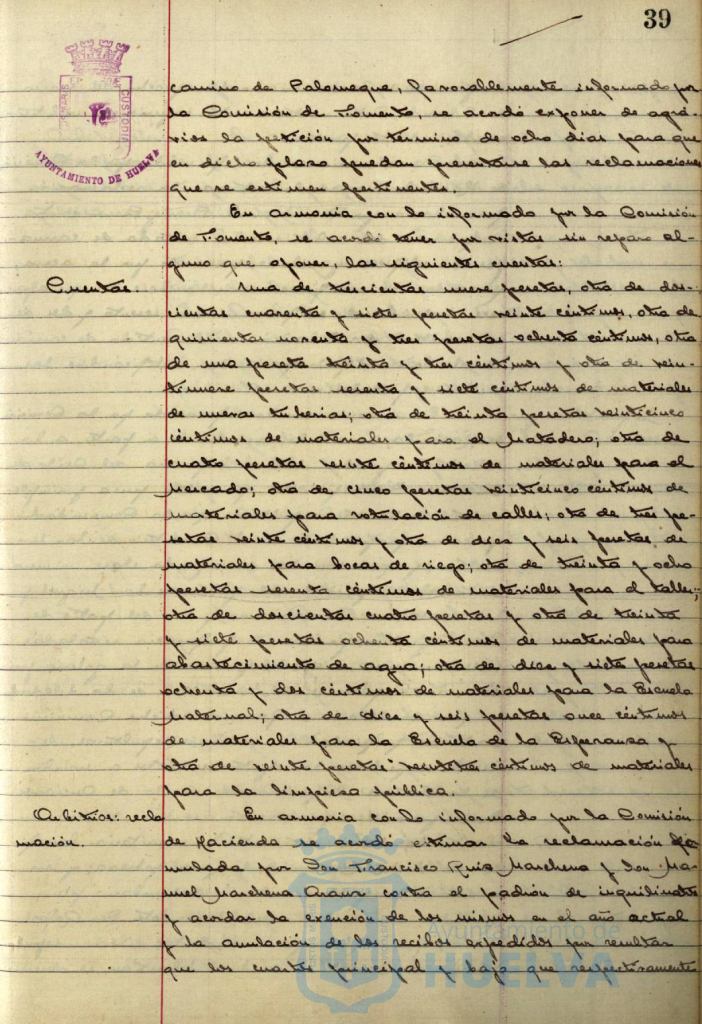 39
PORTUS MARIS ET TERRAE CUSTODIA
AYUNTAMIENTO DE HUELVA
camino de Palomeque, favorablemente informado por
la Comisión de Fomento, se acordó exponer de agra-
vios la petición por término de ocho dias para que
en dicho plazo puedan presentarse las reclamaciones
que se estimen pertinentes.
En armonia con lo informado por la Comisión
de Fomento, se acordó tener por vistas sin reparo al-
guno que oponer, las siguientes cuentas:
Cuentas.
Una de trescientas nueve pesetas, otra de dos-
cientas cuarenta y siete pesetas veinte céntimos, otra de
quinientas noventa y tres pesetas ochenta céntimos, otra
de una peseta treinta y tres céntimos y otra de vein-
tinueve pesetas sesenta y siete céntimos de materiales
de nuevas tuberias; otra de treinta pesetas veinticinco
céntimos de materiales para el Matadero; otra de
cuatro pesetas veinte céntimos de materiales para el
Mercado; otra de cinco pesetas veinticinco céntimos de
materiales para rotulación de calles; otra de tres pe-
setas veinte céntimos y otra de diez y seis pesetas de
materiales para bocas de riego; otra de treinta y ocho
pesetas sesenta céntimos de materiales para el taller;
otra de doscientas cuatro pesetas y otra de treinta
y siete pesetas ochenta céntimos de materiales para
abastecimiento de agua; otra de diez y siete pesetas
ochenta y dos céntimos de materiales para la Escuela
Maternal; otra de diez y seis pesetas once céntimos
de materiales para la Escuela de la Esperanza y
otra de veinte pesetas veintitres céntimos de materiales
para la limpieza pública.
Arbitrios: recla
mación.
En armonia con lo informado por la Comisión
de Hacienda se acordó estimar la reclamación for-
mulada por Don Francisco Ruiz Marchena y Don Ma-
nuel Marchena Arauz contra el padrón de inquilinatos
y acordar la exención de los mismos en el año actual
y la anulación de los recibos expedidos por resultar
que los cuartos principal y bajo que respectivamente
Ayuntamiento de
HUELVA